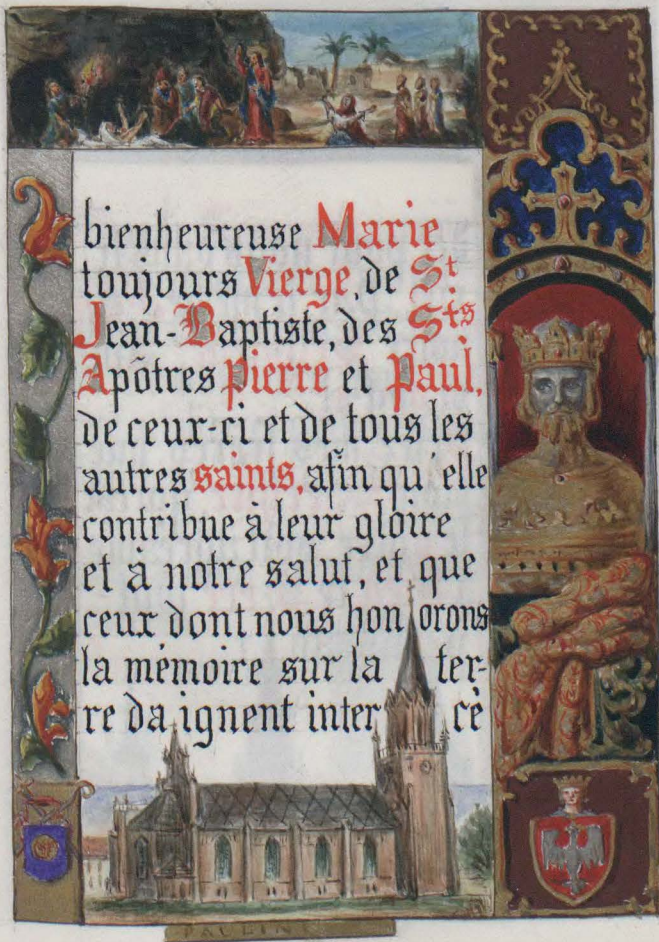 bienheureuse Marie
toujours Vierge, de St
Jean-Baptiste, des Sts
Apôtres Pierre et Paul,
de ceux-ci et de tous les
autres saints, afin qu'elle
contribue à leur gloire
et à notre salut, et que
ceux dont nous honorons
la mémoire sur la ter-
re daignent intercè
PAULIN